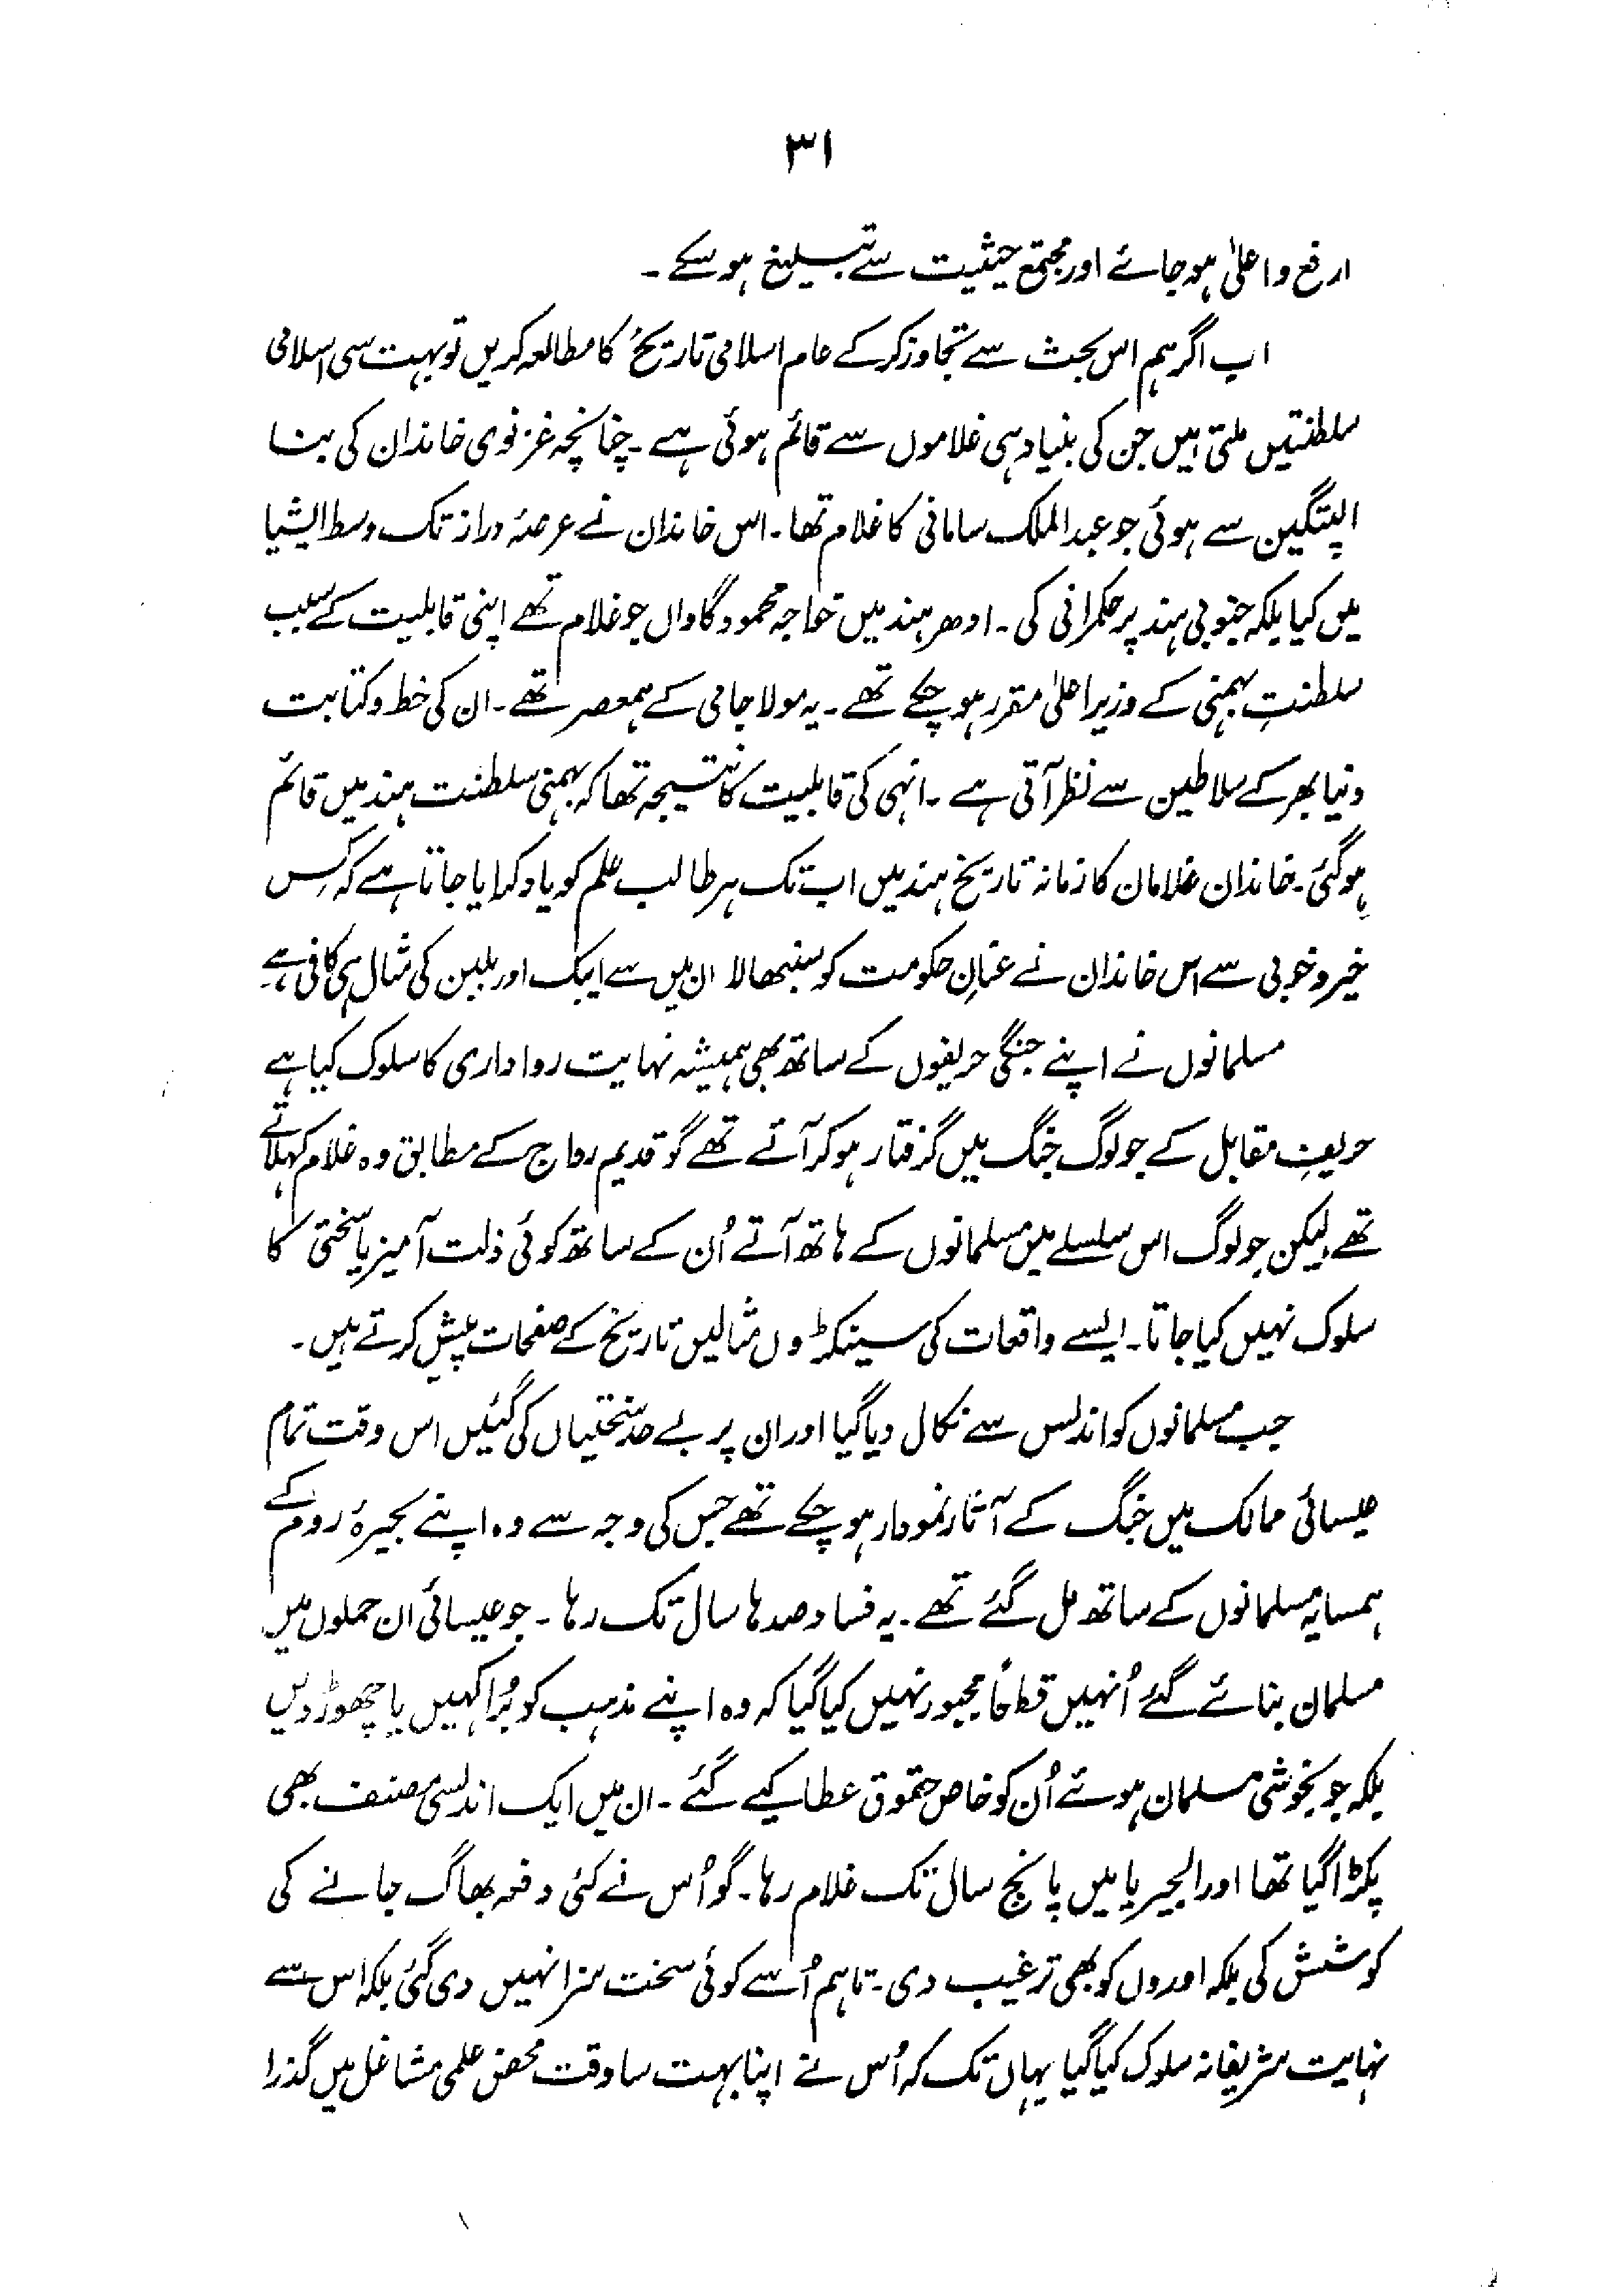 ۳۱
ارفع و اعلیٰ ہو جائے اور مجتمع حیثیت سے تبلیغ ہو سکے۔
اب اگر ہم اس بحث سے تجاوز کر کے عام اسلامی تاریخ کا مطالعہ کریں تو بہت سی اسلامی
سلطنتیں ملتی ہیں جن کی بنیاد ہی غلاموں سے قائم ہوئی ہے۔ چنانچہ غزنوی خاندان کی بنا
الپتگین سے ہوئی جو عبد الملک سامانی کا غلام تھا۔ اس خاندان نے عرصۂ دراز تک وسط ایشیا
میں کیا بلکہ جنوبی ہند پر حکمرانی کی۔ ادھر ہند میں خواجہ محمود گاواں جو غلام تھے اپنی قابلیت کے سبب
سلطنتِ بہمنی کے وزیر اعلیٰ مقرر ہو چکے تھے۔ یہ مولا جامی کے ہمعصر تھے۔ ان کی خط و کتابت
دنیا بھر کے سلاطین سے نظر آتی ہے۔ انہی کی قابلیت کا نتیجہ تھا کہ بہمنی سلطنت ہند میں قائم
ہو گئی۔ خاندان غلامان کا زمانہ تاریخ ہند میں اب تک ہر طالب علم کو یاد کرایا جاتا ہے کہ کِس
خیر و خوبی سے اس خاندان نے عنانِ حکومت کو سنبھالا ان میں سے ایبک اور بلبن کی مثال ہی کافی ہے
مسلمانوں نے اپنے جنگی حریفوں کے ساتھ بھی ہمیشہ نہایت رواداری کا سلوک کیا ہے
حریفِ مقابل کے جو لوگ جنگ میں گرفتار ہو کر آتے تھے گو قدیم رواج کے مطابق وہ غلام کہلاتے
تھے لیکن جو لوگ اس سلسلے میں مسلمانوں کے ہاتھ آتے اُن کے ساتھ کوئی ذلت آمیز یا سختی کا
سلوک نہیں کیا جاتا۔ ایسے واقعات کی سینکڑوں مثالیں تاریخ کے صفحات پیش کرتے ہیں۔
جب مسلمانوں کو اندلس سے نکال دیا گیا اور ان پر بے حد سختیاں کی گئیں اس وقت تمام
عیسائی ممالک میں جنگ کے آثار نمودار ہو چکے تھے جس کی وجہ سے وہ اپنے بحیرۂ روم کے
ہمسایہ مسلمانوں کے ساتھ مل گئے تھے۔ یہ فساد صدہا سال تک رہا۔ جو عیسائی ان حملوں میں
مسلمان بنائے گئے اُنہیں قطعاً مجبور نہیں کیا گیا کہ وہ اپنے مذہب کو بُرا کہیں یا چھوڑ دیں
بلکہ جو بخوشی مسلمان ہوئے اُن کو خاص حقوق عطا کیے گئے۔ ان میں ایک اندلسی مصنف بھی
پکڑا گیا تھا اور الجیریا میں پانچ سال تک غلام رہا۔ گو اُس نے کئی دفعہ بھاگ جانے کی
کوشش کی بلکہ اوروں کو بھی ترغیب دی۔ تاہم اُسے کوئی سخت سزا نہیں دی گئی بلکہ اس سے
نہایت شریفانہ سلوک کیا گیا یہاں تک کہ اُس نے اپنا بہت سا وقت محض علمی مشاغل میں گذرا